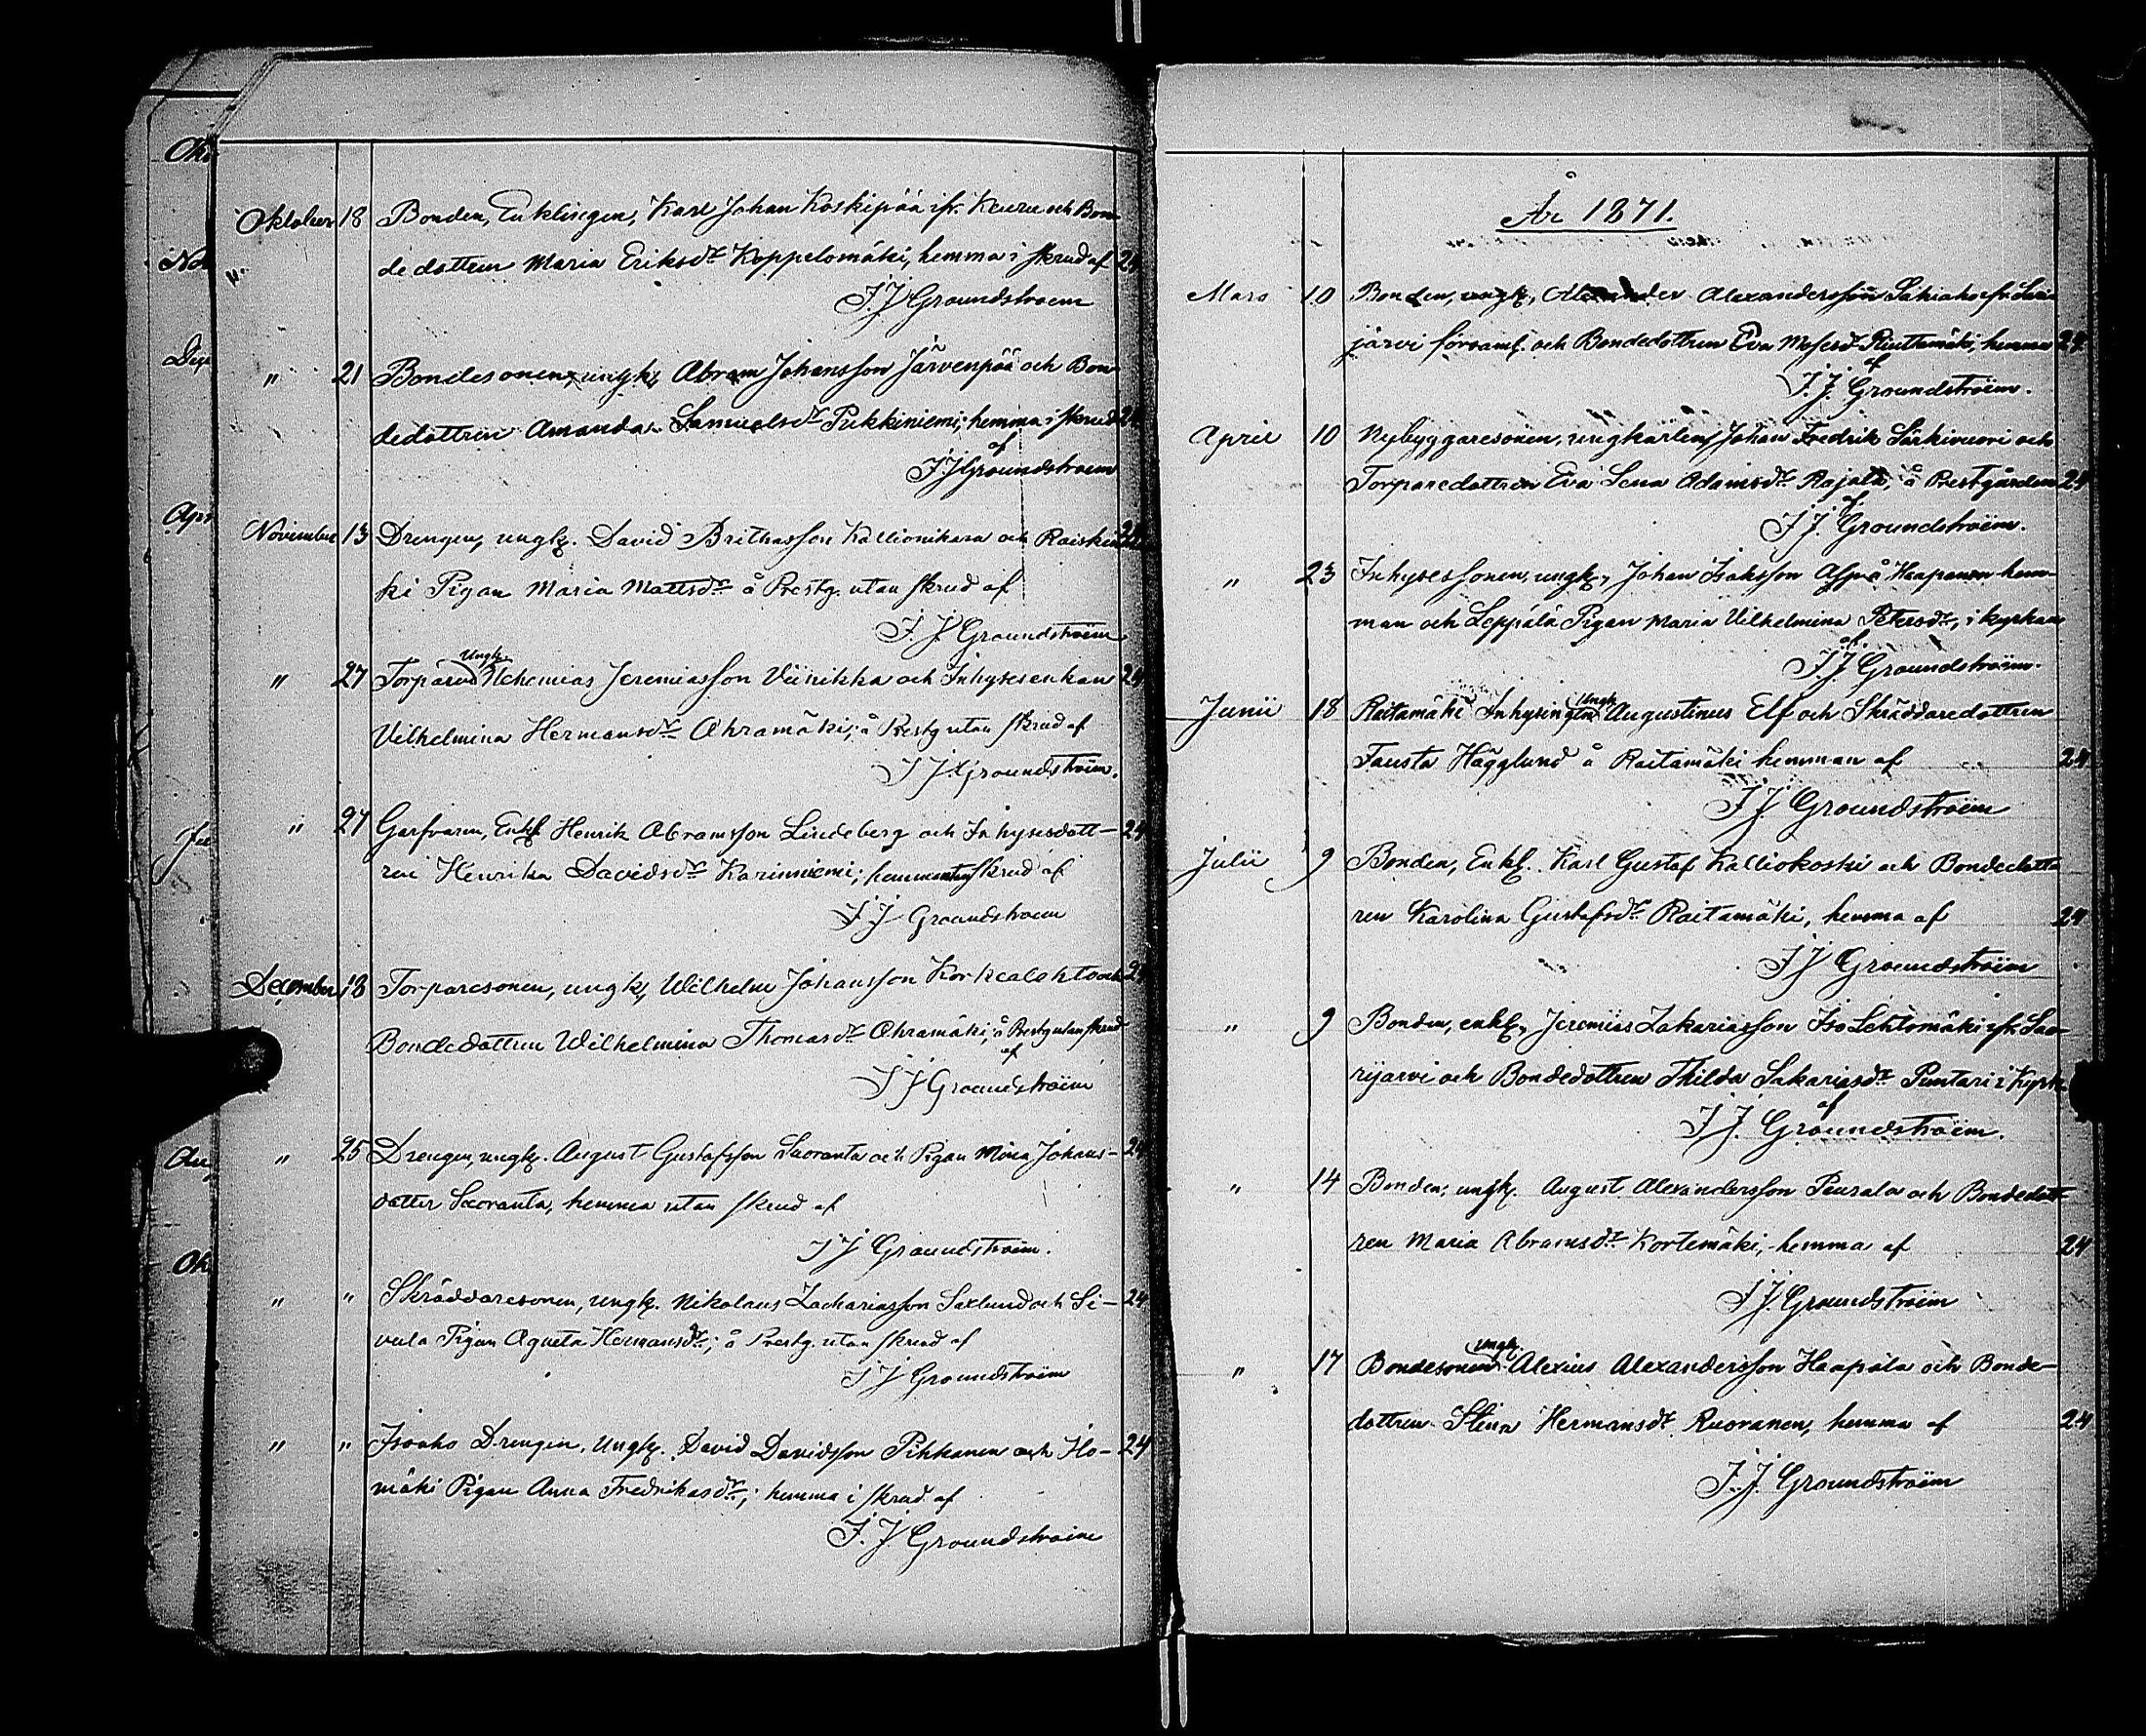 Oktober 18 Bonden, Enklingen, Karl Johan Koskipää ifr. Keuru och Bon-
dedottren Maria Eriksdr Koppelomäki, hemma i skrud af 24
J. J Groundstroem
" 21 Bondesonen, ungk, Abram Johansson Järvenpää och Bon-
dedottren Amanda Samuelsdr Pukkiniemi; hemma i skrud 24
af
J J Groundstroem
November 13 Drengen, ungk. David Brithasson Kallionikara och Raiskin- 24
ki Pigan Maria Mattsdr å Prestg. utan skrud af
J. J Groundström
Ungk.
" 27 Torparen Nehemias Jeremiasson Viinikka och Inhysesenkan 24
Vilhelmina Hermansdr Ahramäki; å Prestg utan skrud af
J J Groundström.
" 27 Garfvaren, Enkl Henrik Abramsson Lindeberg och Inhysesdott- 24
ren Henrika Davidsdr Kariniemi; hemma utan skrud af
J J Groundstroem
December 18 Torparesonen, ungk, Wilhelm Johansson Korkealehto och 24
Bondedottren Wilhelmina Thomasdr Ahramäki; å Prestg utan skrud
af
J J Groundström
" 25 Drengen, ungk. August Gustafsson Saoranta och Pigan Mina Johans- 24
dotter Saoranta, hemma utan skrud af
J J Groundström.
" " Skräddaresonen, ungk. Nikolaus Zachariasson Saxlund och Si- 24
vula Pigan Agneta Hermansdr; å Prestg. utan skrud af
J J Groundström
" " Isoaho Drengen, ungk. David Davidsson Pihkanen och Ho- 24
mäki Pigan Anna Fredrikasdr; hemma i skrud af
J. J Groundström
År 1871.
Mars 10 Bonden, ungk, Alexander Alexandersson Sahiaho ifr. Saari-
järvi församl. och Bondedottren Eva Mosesdr Ruuttamäki, hemma 24
af
J. J. Groundström.
April 10 Nybyggaresonen, ungkarlen, Johan Fredrik Särkivuori och
Torparedottren Eva Lena Adamsdr Rajala, å Prestgården 24
af
J J. Groundström.
" 23 Inhysessonen, ungk, Johan Isaksson Asp å Haapanen hem-
man och Leppälä Pigan Maria Vilhelmina Petersdr, i kyrkan
af
J. J. Groundström.
Ungk
Junii 18 Raitamäki Inhysingen Augustinus Elf och Skräddaredottren
Fausta Hägglund å Raitamäki hemman af 24
J J Groundström
Julii 9 Bonden, Enkl. Karl Gustaf Kalliokoski och Bondedott-
ren Karolina Gustafsdr Raitamäki, hemma af 24
J J Groundström
" 9 Bonden, enkl, Jeremias Zakariasson Iso Lehtomäki ifr. Saa-
rijarvi och Bondedottren Thilda Sakariasdr Puntari i Kyrk.
af
J J. Groundström.
" 14 Bonden, ungk. August Alexandersson Peurala och Bondedott-
ren Maria Abramsdr Kortemäki, hemma af 24
J J. Groundström
Ungk.
" 17 Bondesonen Alexius Alexandersson Haapala och Bonde-
dottren Stina Hermansdr Ruoranen, hemma af 24
J. J. Groundström